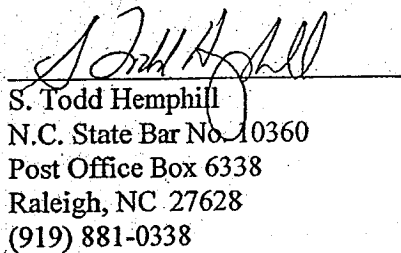 S Todd Hemphill
S. Todd Hemphill
N.C. State Bar No. 10360
Post Office Box 6338
Raleigh, NC 27628
(919) 881-0338